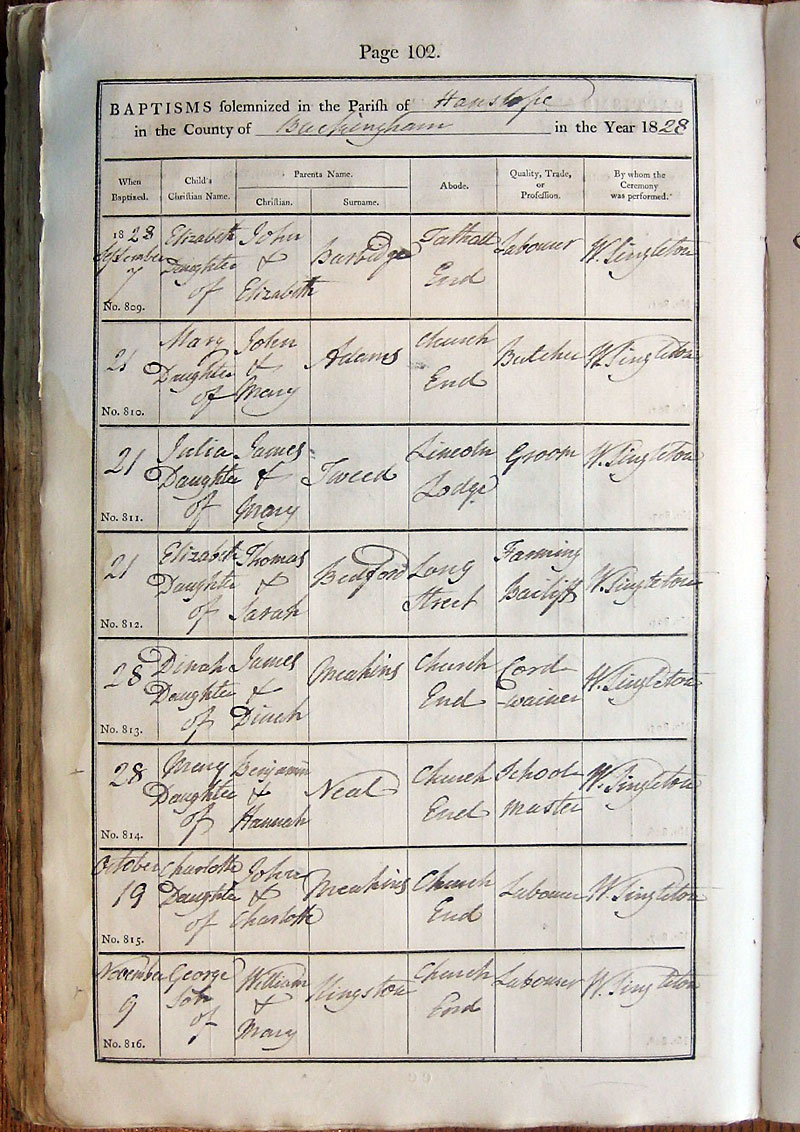 Page 102.
BAPTISMS solemnized in the Parish of Hanslope
in the County of Buckingham in the Year 1828
When Baptized. Child's Christian Name. Parents Name. Christian. Surname. Abode. Quality, Trade, or Profession. By whom the Ceremony was performed.
1828 Elizabeth John Tathall
September Daughter & Burbidge Labourer W. Singleton
7 of Elizabeth End
No. 809.
Mary John Church
21 Daughter & Adams Butcher W. Singleton
of Mary End
No. 810.
Julia James Lincoln Groom
21 Daughter & Tweed W. Singleton
of Mary Lodge
No. 811.
Elizabeth Thomas Farming
21 Daughter & Bedford Long Bailiff W. Singleton
of Sarah Street
No. 812.
Dinah James Meakins Church Cord
28 Daughter & End -wainer W. Singleton
of Dinah
No. 813.
28 Mary Benjamin Church School W. Singleton
Daughter & Neal End Master
of Hannah
No. 814.
October Charlotte John Church
19 Daughter & Meakins Labourer W. Singleton
of Charlotte End
No. 815.
November George William Church Labourer W. Singleton
9 Son & Kingston End
of Mary
No. 816.